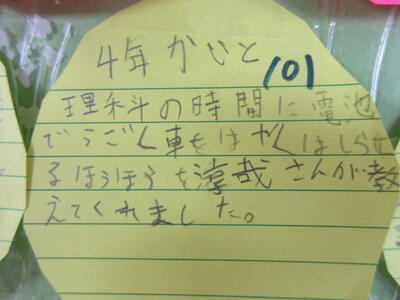 4年 かいと
101
理科の時間に電池
でうごく車をはやくはしらせ
るほうほうを淳哉さんが教
えてくれました。